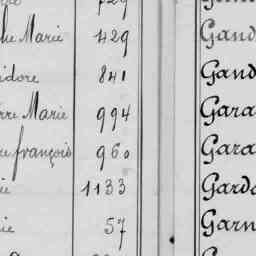 729
Marie 429 Gand
idore 841 Gand
Marie 994 Gara
françois 960 Gara
1133 Gard
57 Garn